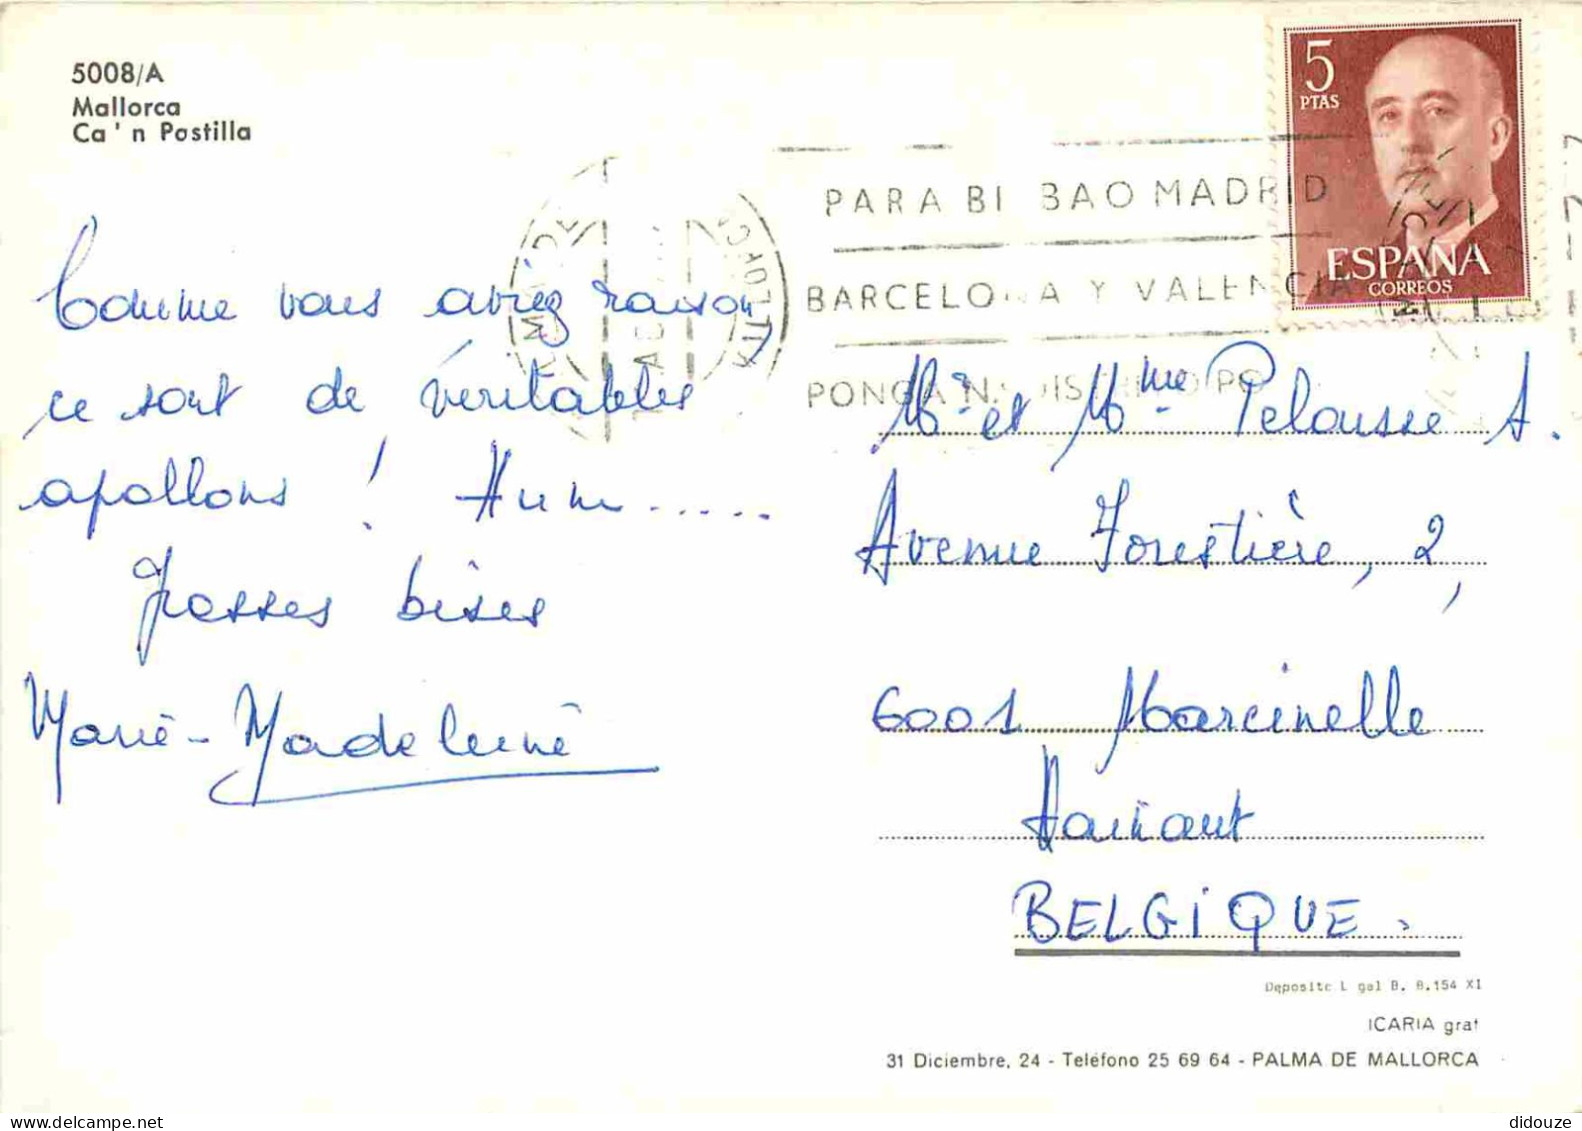 5008/A
Mallorca
Ca'n Pastilla
5
PTAS
ESPAÑA
CORREOS
PARA BILBAO MADRID
BARCELONA Y VALENCIA
PONGA N. DISTRITO PO
Comme vous aviez raison
ce sont de véritables
apollons ! Hum.....
Grosses bises
Marie-Madeleine
Mr et Mme Pelousse A.
Avenue Forestière, 2,
6001 Marcinelle
Hainaut
BELGIQUE.
Deposito L gal B. 8.154 XI
ICARIA graf
31 Diciembre, 24 - Teléfono 25 69 64 - PALMA DE MALLORCA
didouze